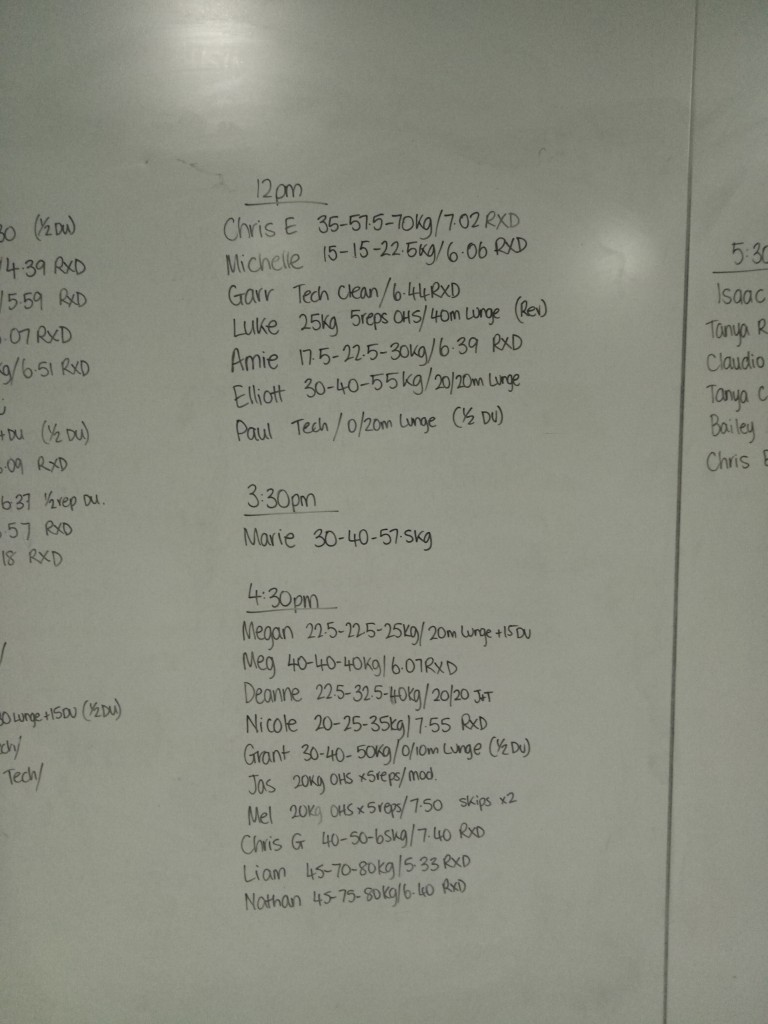 30 (1/2 DU)
/4.39 RXD
/5.59 RXD
.07 RXD
kg/6.51 RXD
+DU (1/2 DU)
.09 RXD
6.37 1/2 rep DU.
.57 RXD
18 RXD
/
30 Lunge +15DU (1/2 DU)
ch/
Tech/
12pm
Chris E 35-57.5-70kg/7.02 RXD
Michelle 15-15-22.5kg/6.06 RXD
Garr Tech Clean/6.44 RXD
Luke 25kg 5reps OHS/40m Lunge (Rev)
Amie 17.5-22.5-30kg/6.39 RXD
Elliott 30-40-55kg/20/20m Lunge
Paul Tech/0/20m Lunge (1/2 DU)
3:30pm
Marie 30-40-57.5kg
4:30pm
Megan 22.5-22.5-25kg/20m Lunge +15DU
Meg 40-40-40kg/6.07 RXD
Deanne 22.5-32.5-40kg/20/20 J+T
Nicole 20-25-35kg/7.55 RXD
Grant 30-40-50kg/0/10m Lunge (1/2 DU)
Jas 20kg OHS x5reps/mod.
Mel 20kg OHS x5reps/7.50 skips x2
Chris G 40-50-65kg/7.40 RXD
Liam 45-70-80kg/5.33 RXD
Nathan 45-75-80kg/6.40 RXD
5:30
Isaac
Tanya R
Claudio
Tanya C
Bailey
Chris